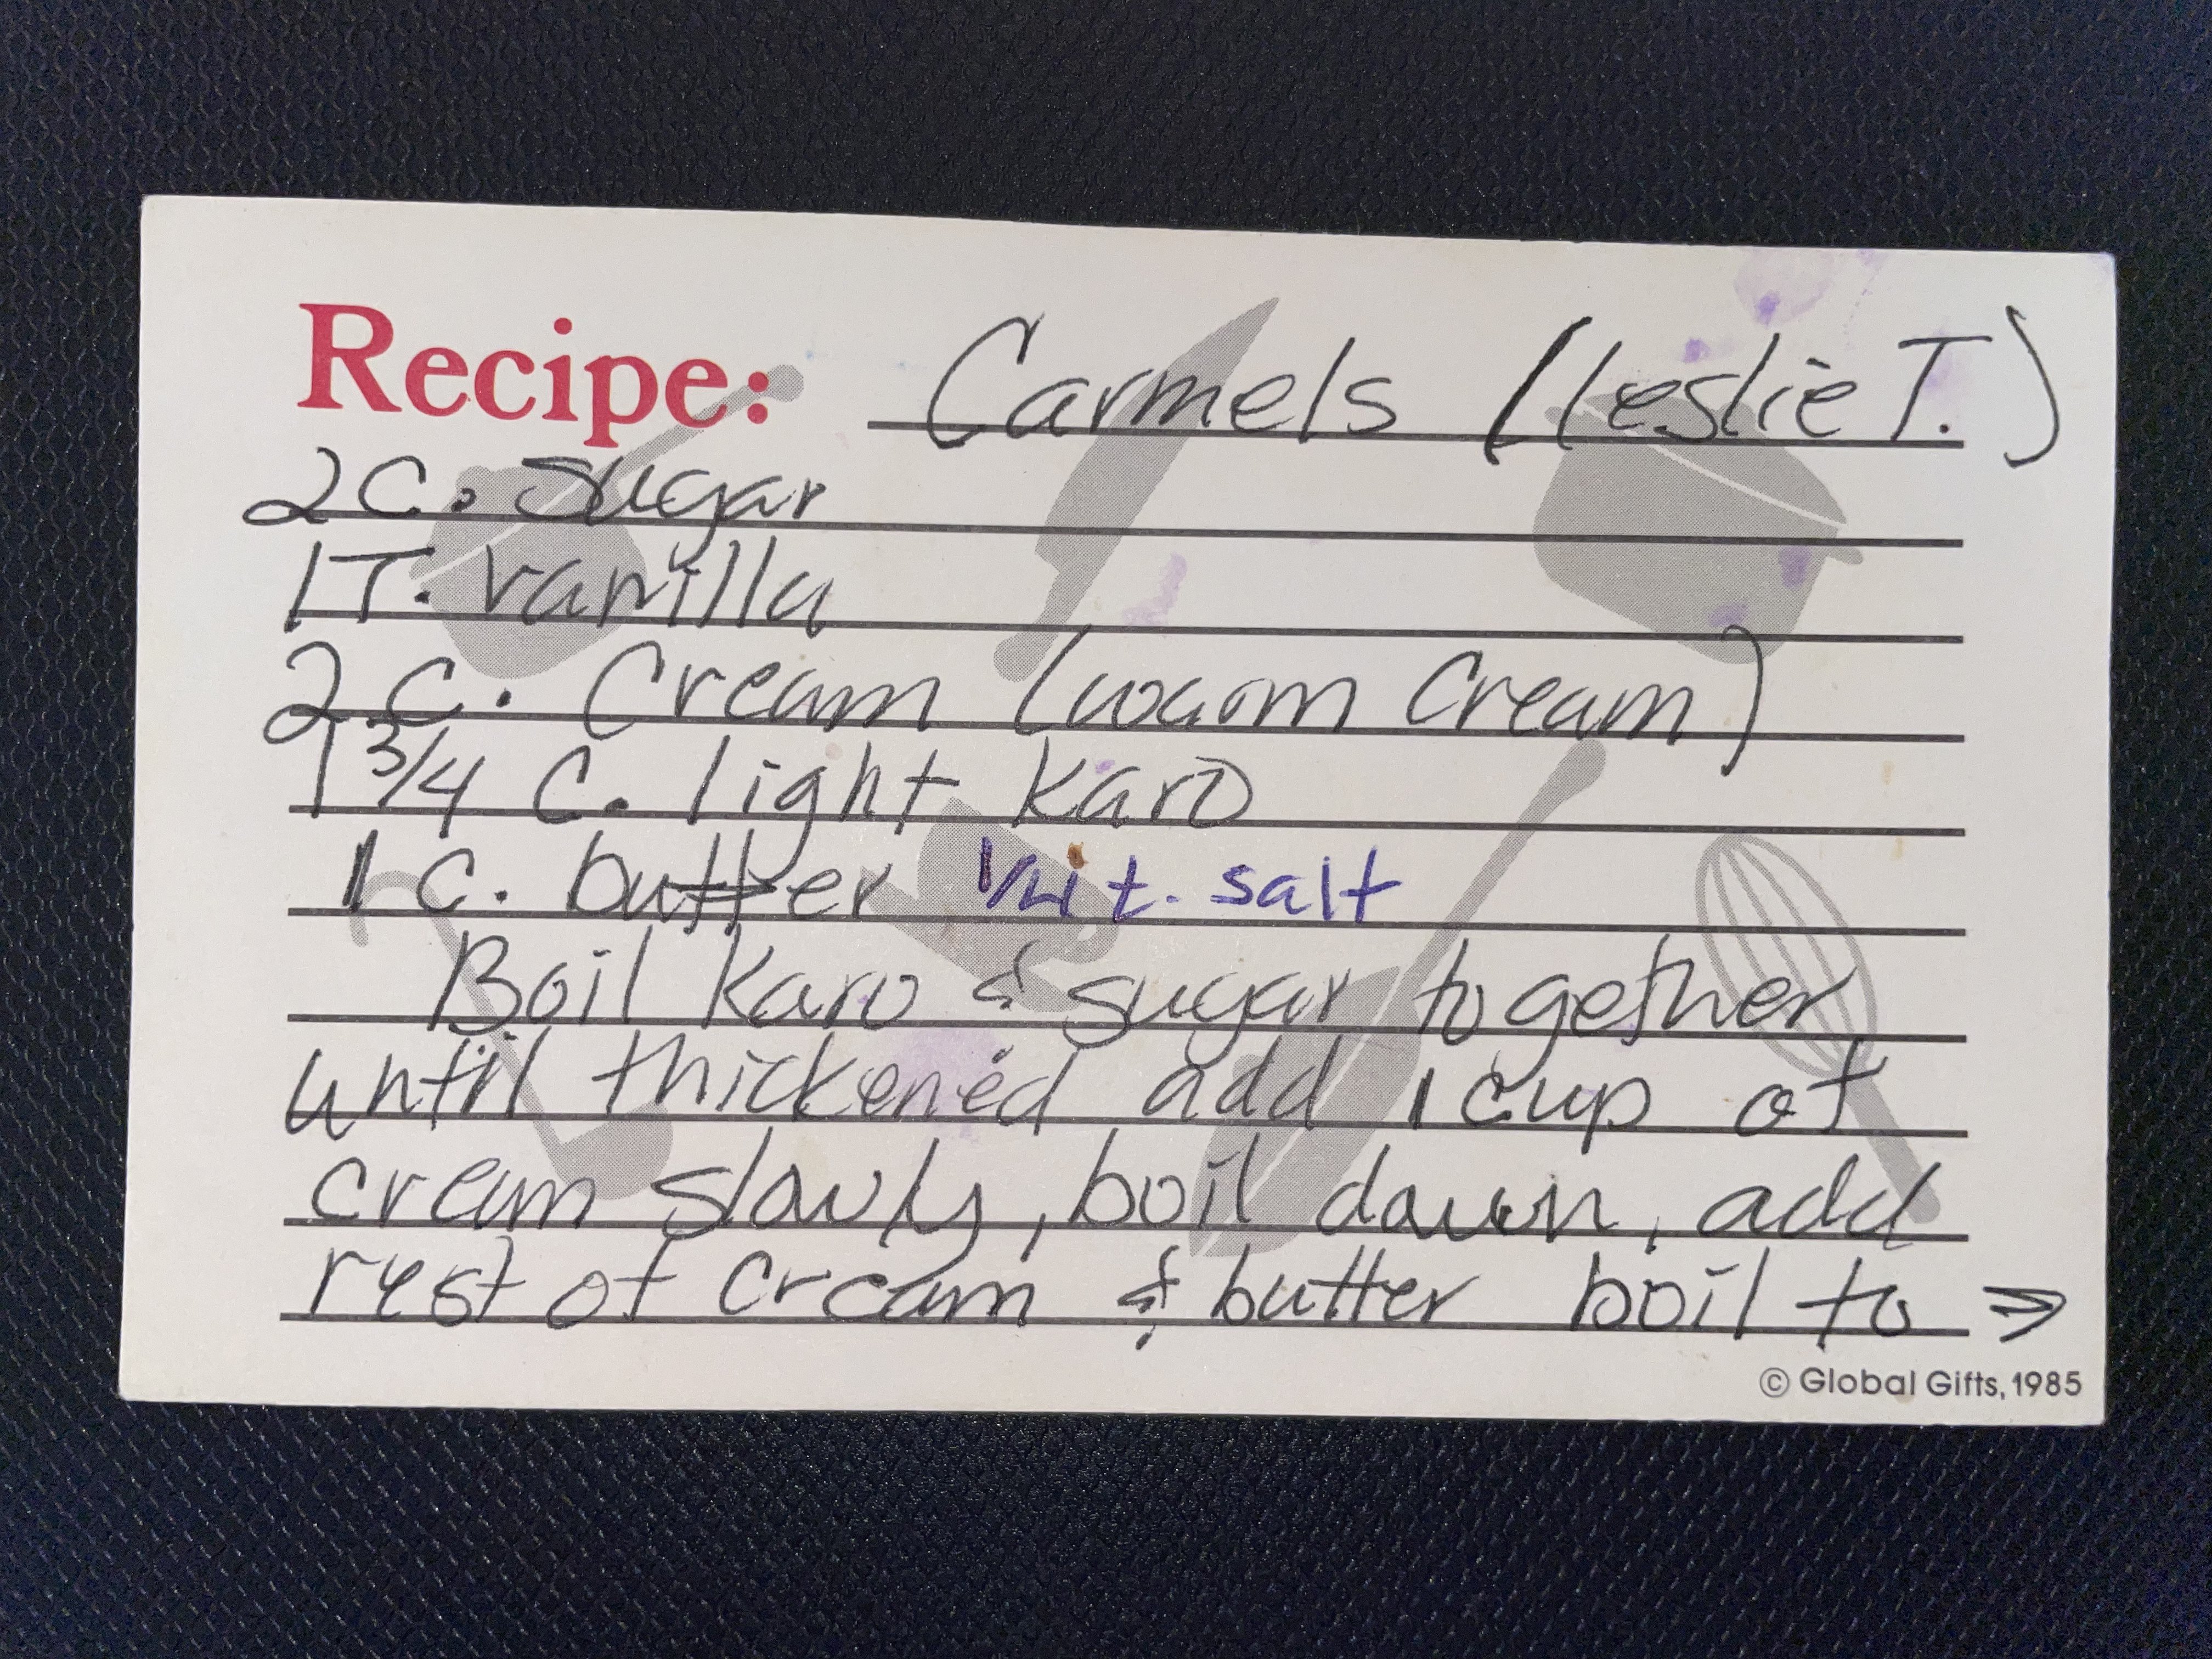 Recipe: Carmels (leslie T.)
2 C. Sugar
1 T. vanilla
2 C. Cream (warm Cream)
1 3/4 C. light Karo
1 C. butter 1/4 t. salt
Boil Karo & sugar together
until thickened add 1 cup of
cream slowly, boil down, add
rest of cream & butter boil to ⇒
© Global Gifts, 1985